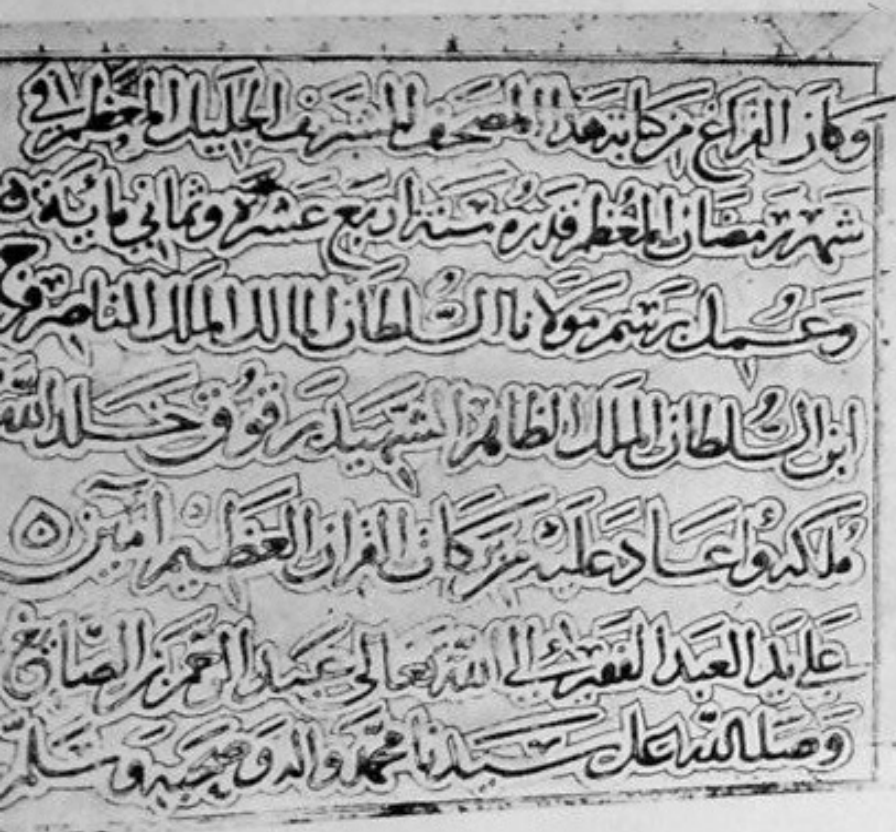 وكان الفراغ من كتابة هذا المصحف الشريف الجليل المعظم في
شهر رمضان المعظم قدره سنة اربع عشرة وثماني مائية
وعمل برسم مولانا السلطان المالك الملك الناصر فرج
ابن السلطان الملك الظاهر الشهيد برقوق خلد الله
ملكه واعاد عليه من بركات القران العظيم امين
على يد العبد الفقير الى الله تعالى عبد الرحمن بن الصايغ
وصلى الله على سيدنا محمد واله وصحبه وسلم